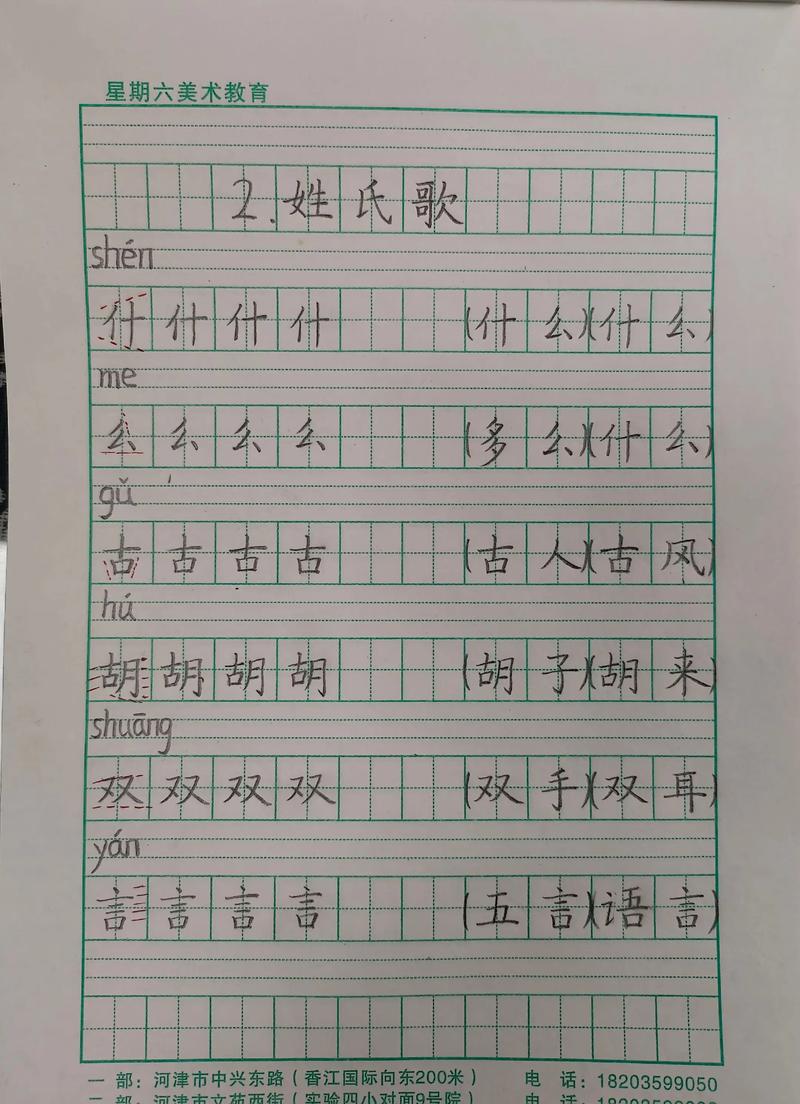 星期六美术教育
2.姓氏歌
shén
什 什 什 什 (什么)(什么)
me
么 么 么 么 (多么)(什么)
gǔ
古 古 古 古 (古人)(古风)
hú
胡 胡 胡 胡 (胡子)(胡来)
shuāng
双 双 双 双 (双手)(双耳)
yán
言 言 言 言 (五言)(语言)
一 部：河津市中兴东路（香江国际向东200米） 电 话：18203599050
二 部：河津市文苑西街（实验四小对面9号院） 电 话：